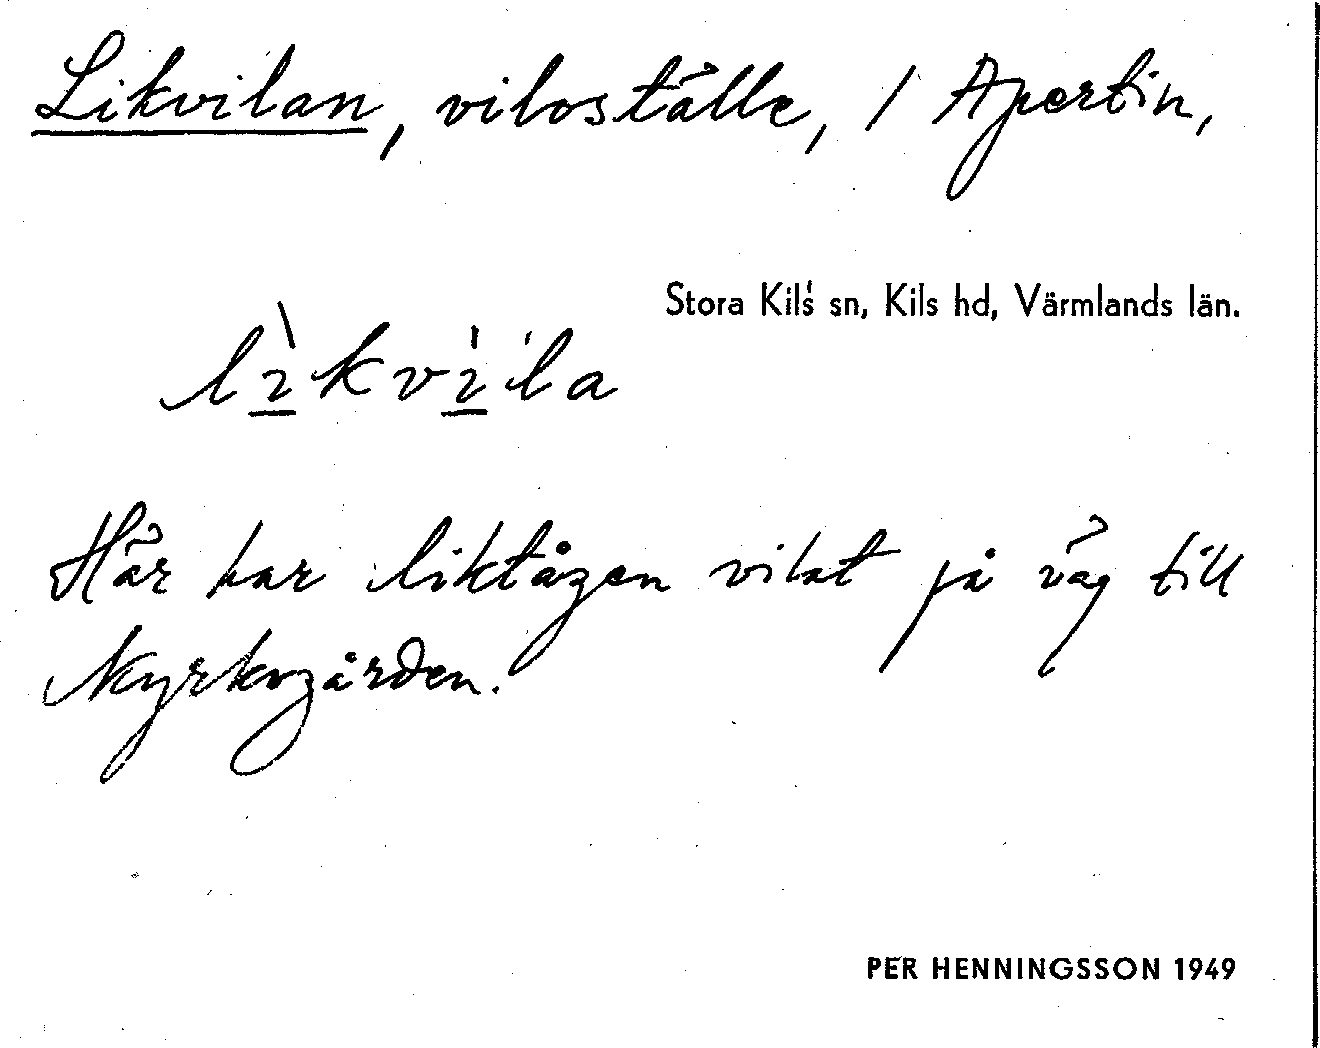 Likvilan, viloställe, / Apertin,
Stora Kils sn, Kils hd, Värmlands län.
lìkvi̍la
Här har liktågen vilat på väg till
Kyrkogården.
PER HENNINGSSON 1949